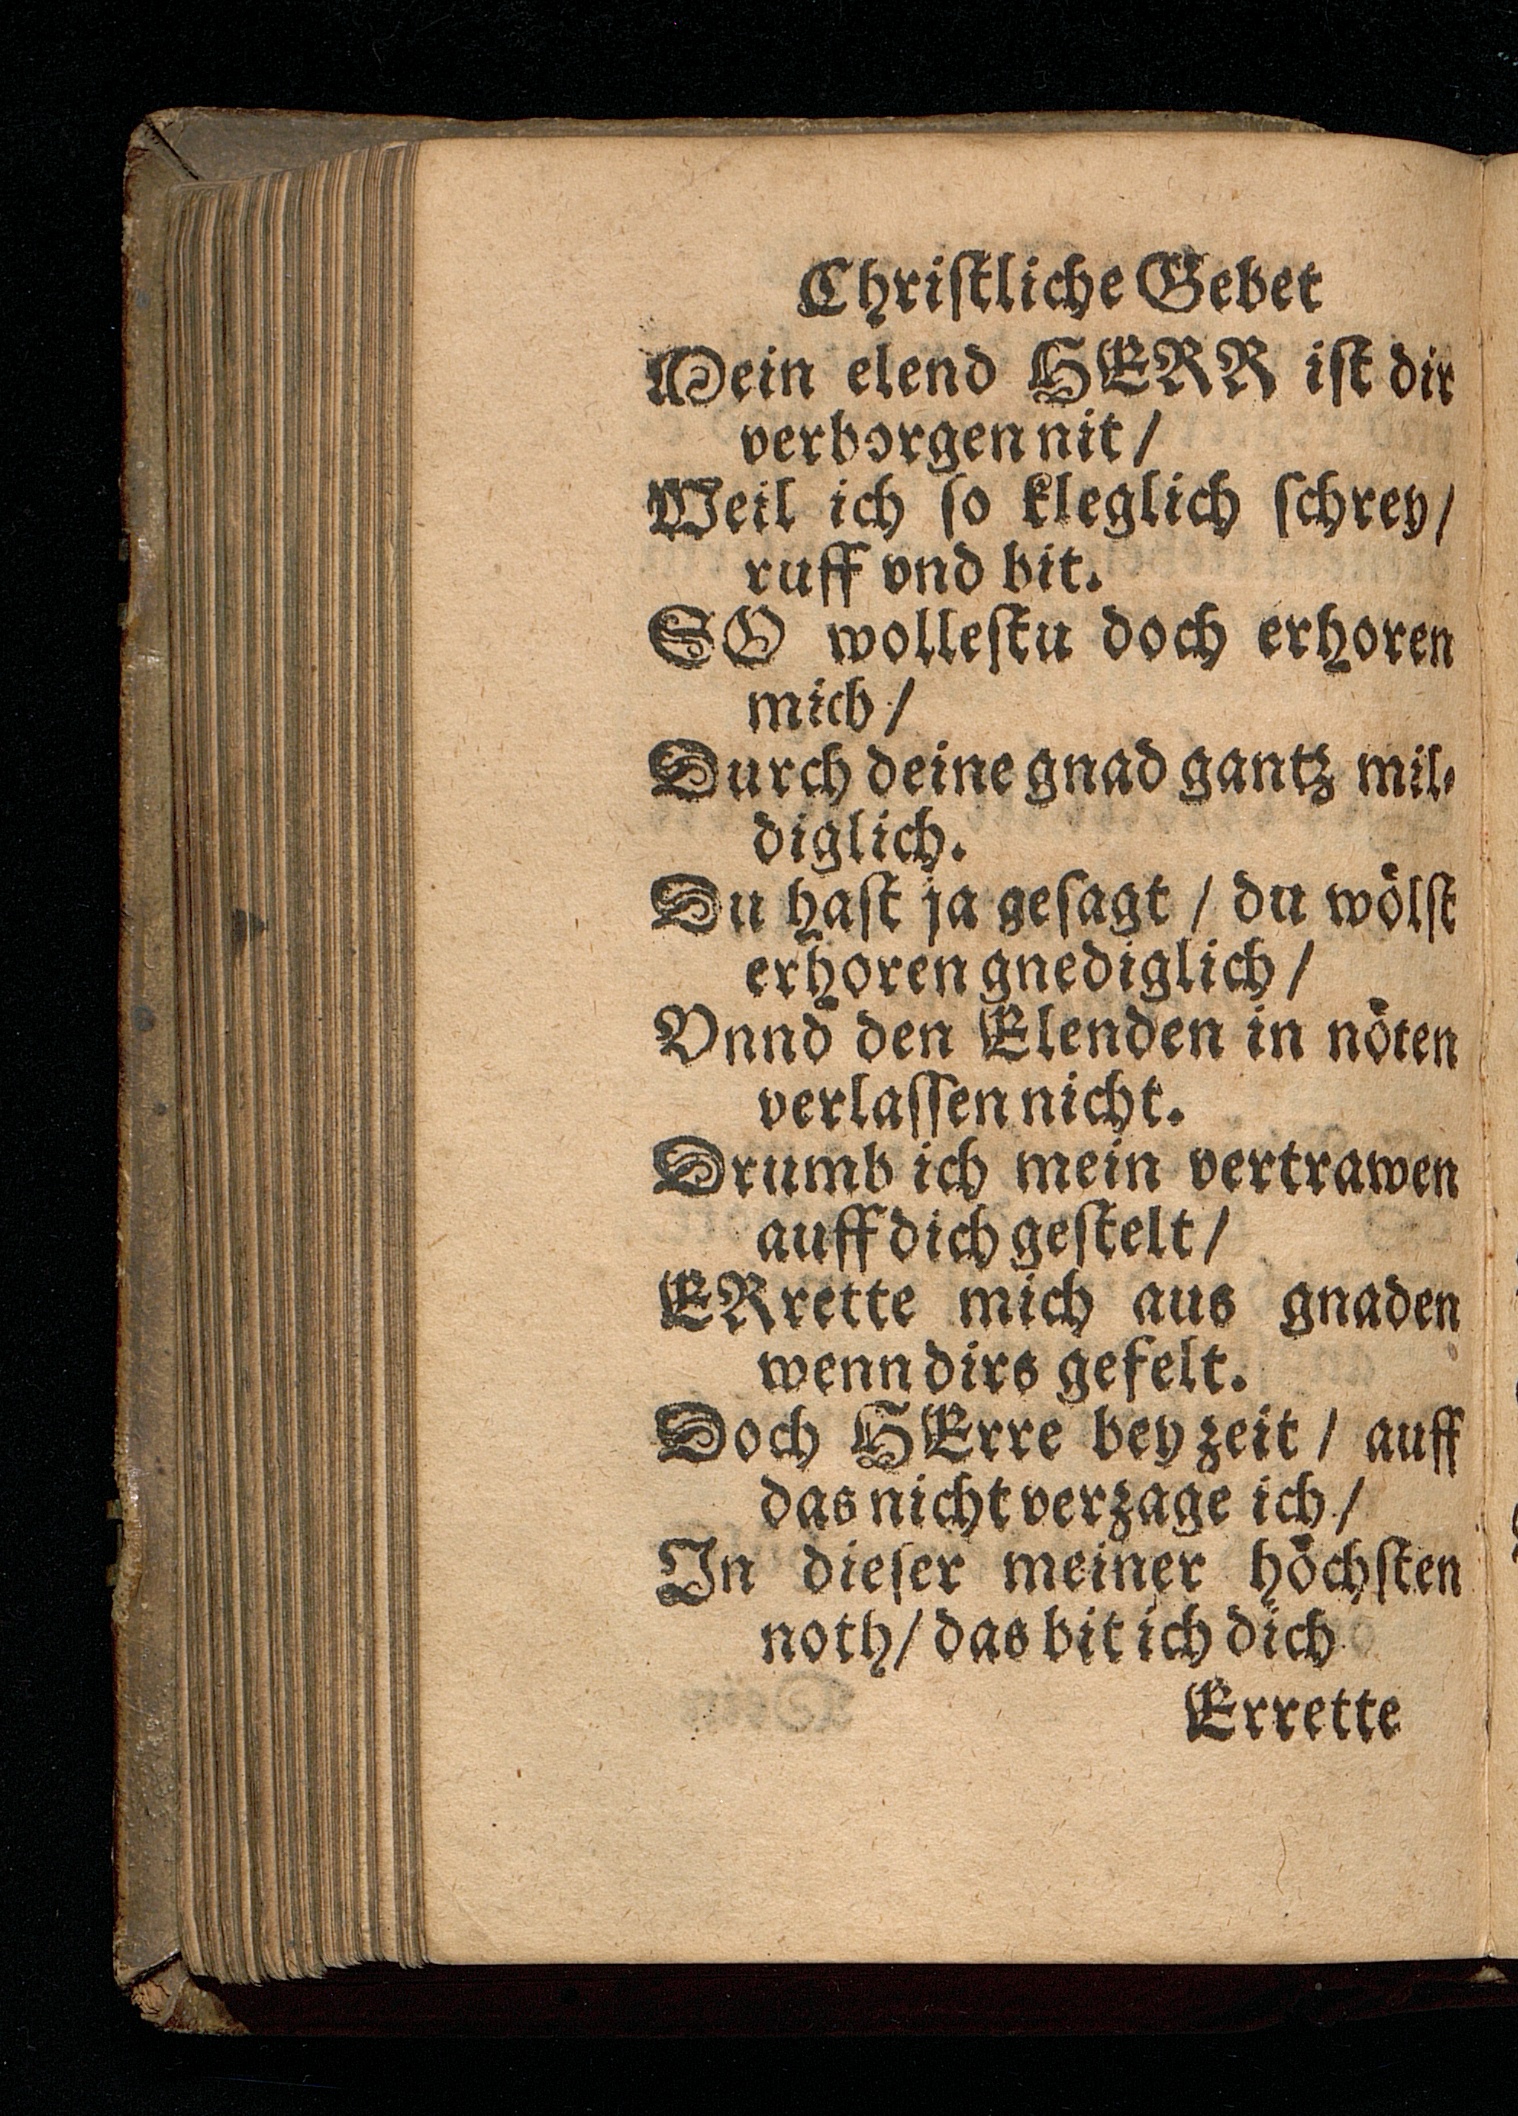 Chriſtliche Gebet
Mein elend HERR iſt dir
verborgen nit /
Weil ich ſo kleglich ſchrey /
ruff vnd bit.
SO wolleſtu doch erhoren
mich /
Durch deine gnad gantz mil-
diglich.
Du haſt ja geſagt / du wölſt
erhoren gnediglich /
Vnnd den Elenden in nöten
verlaſſen nicht.
Drumb ich mein vertrawen
auff dich geſtelt /
ERrette mich aus gnaden
wenn dirs gefelt.
Doch HErre bey zeit / auff
das nicht verzage ich /
In dieſer meiner höchſten
noth / das bit ich dich
Errette